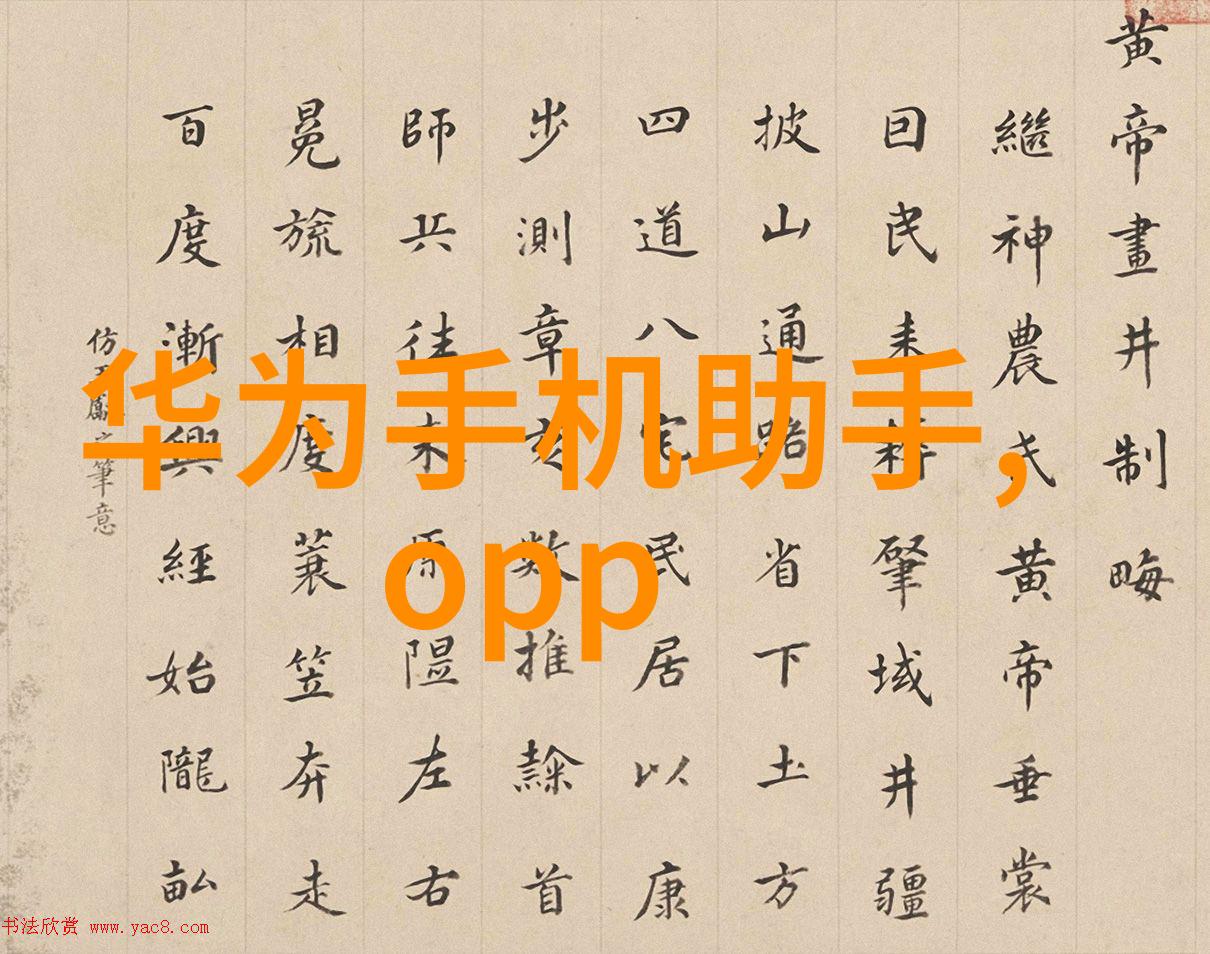 黄帝畫井制畮
繼神農氏黄帝垂裳
曰民耒耕肇域井疆
披山通路省下土方
四道八宅民居以康
步測章亥數推隸首
師兵往来原隰左右
冕旒相度蓑笠奔走
百度漸興經始隴畝
筆意
华为手机助手，
opp
书法欣赏 www.yac8.com